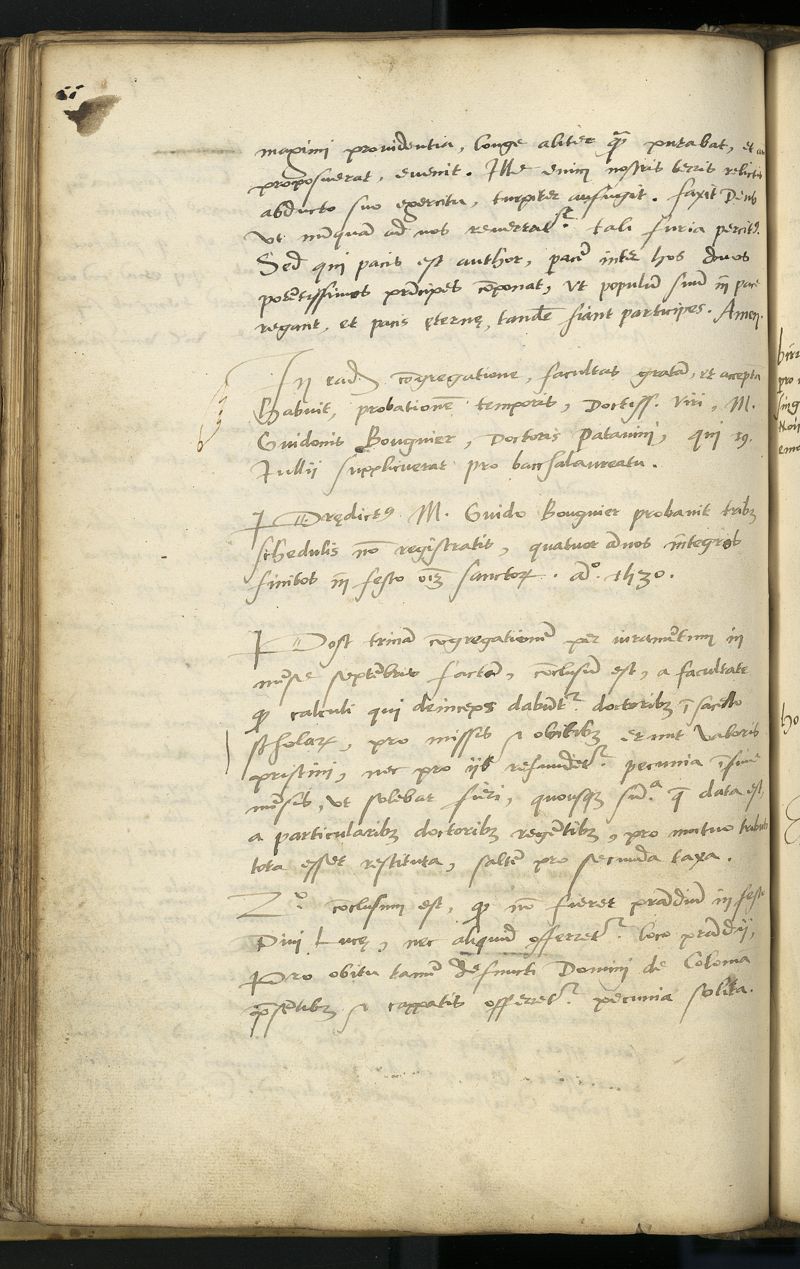 maximi prouidentia, longe aliter quā putabat, et
proposuerat, euenit. Ille enim nostris terris relictis
abducto suo exercitu, turpiter aufugit. faxit Deus
Vt nūquā ad nos reuertatr tali furia percitꝰ.
Sed qui pacis est author, pacē inter hos duos
potētissimos prīcipes cōponat, Vt populū suū in pace
regant, et pacis ęternę, tandē fiant participes. Amen.
In eadē cōgregatione, facultas gratā, et accepta
habuit, probationē temporis, Doctiss. viri, M.
Guidonis Bouguier, Doctoris Patauini, qui 19.
Iullii supplicuerat pro bacchalaureatu.
Prędictꝰ M. Guido Bouguier probauit tribꝫ
schedulis nō registratis, quatuor ānos integros
finitos in festo oīm sanctoꝝ. ao. 1530.
Post trinā cōgregationē per iuramētum in
mēse septēbris factā, cōclusū est, a facultate
qp calculi qui deinceps dabūtr doctoribꝫ ī sacello
scholaꝝ, pro missis et obitibꝫ erunt valoris
pristini, nec pro iis refundetr pecunia ī fine
mēsis, vt solebat fieri, quousqꝫ sūa q̄ data est,
a particularibꝫ doctoribꝫ regētibꝫ, pro mutuo
tota esset restituta, saltē pro secunda taxa.
2o. cōclusum est, qp nō fieret prādiū in festo
Diui Lucę, nec aliquid offerretr loco prādii,
Pro obitu tamē defuncti Domini de Coloma
p̄sētibꝫ et cappatis offerretr pecunia solita.